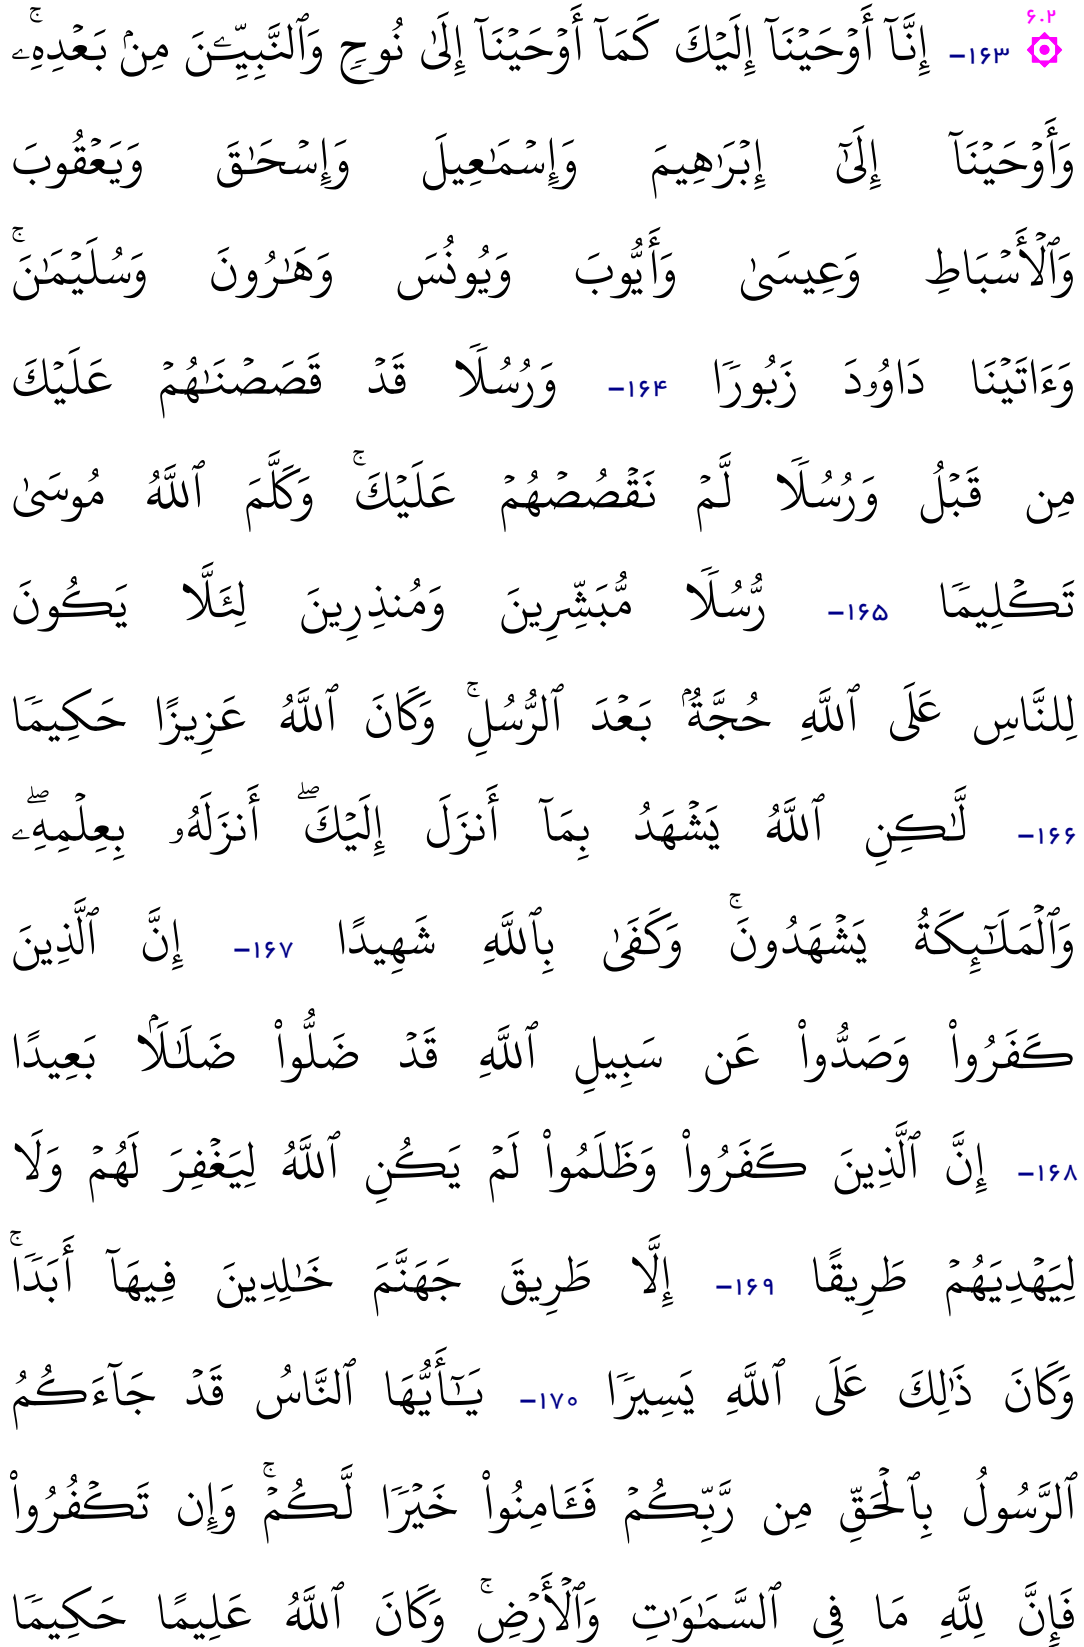 ۶.۲
۞ ۱۶۳- إِنَّآ أَوۡحَيۡنَآ إِلَيۡكَ كَمَآ أَوۡحَيۡنَآ إِلَىٰ نُوحٖ وَٱلنَّبِيِّـۧنَ مِنۢ بَعۡدِهِۦۚ
وَأَوۡحَيۡنَآ إِلَىٰٓ إِبۡرَٰهِيمَ وَإِسۡمَٰعِيلَ وَإِسۡحَٰقَ وَيَعۡقُوبَ
وَٱلۡأَسۡبَاطِ وَعِيسَىٰ وَأَيُّوبَ وَيُونُسَ وَهَٰرُونَ وَسُلَيۡمَٰنَۚ
وَءَاتَيۡنَا دَاوُۥدَ زَبُورٗا ۱۶۴- وَرُسُلٗا قَدۡ قَصَصۡنَٰهُمۡ عَلَيۡكَ
مِن قَبۡلُ وَرُسُلٗا لَّمۡ نَقۡصُصۡهُمۡ عَلَيۡكَۚ وَكَلَّمَ ٱللَّهُ مُوسَىٰ
تَكۡلِيمٗا ۱۶۵- رُّسُلٗا مُّبَشِّرِينَ وَمُنذِرِينَ لِئَلَّا يَكُونَ
لِلنَّاسِ عَلَى ٱللَّهِ حُجَّةُۢ بَعۡدَ ٱلرُّسُلِۚ وَكَانَ ٱللَّهُ عَزِيزًا حَكِيمٗا
۱۶۶- لَّٰكِنِ ٱللَّهُ يَشۡهَدُ بِمَآ أَنزَلَ إِلَيۡكَۖ أَنزَلَهُۥ بِعِلۡمِهِۦۖ
وَٱلۡمَلَٰٓئِكَةُ يَشۡهَدُونَۚ وَكَفَىٰ بِٱللَّهِ شَهِيدًا ۱۶۷- إِنَّ ٱلَّذِينَ
كَفَرُواْ وَصَدُّواْ عَن سَبِيلِ ٱللَّهِ قَدۡ ضَلُّواْ ضَلَٰلَۢا بَعِيدًا
۱۶۸- إِنَّ ٱلَّذِينَ كَفَرُواْ وَظَلَمُواْ لَمۡ يَكُنِ ٱللَّهُ لِيَغۡفِرَ لَهُمۡ وَلَا
لِيَهۡدِيَهُمۡ طَرِيقًا ۱۶۹- إِلَّا طَرِيقَ جَهَنَّمَ خَٰلِدِينَ فِيهَآ أَبَدٗاۚ
وَكَانَ ذَٰلِكَ عَلَى ٱللَّهِ يَسِيرٗا ۱۷۰- يَٰٓأَيُّهَا ٱلنَّاسُ قَدۡ جَآءَكُمُ
ٱلرَّسُولُ بِٱلۡحَقِّ مِن رَّبِّكُمۡ فَـَٔامِنُواْ خَيۡرٗا لَّكُمۡۚ وَإِن تَكۡفُرُواْ
فَإِنَّ لِلَّهِ مَا فِي ٱلسَّمَٰوَٰتِ وَٱلۡأَرۡضِۚ وَكَانَ ٱللَّهُ عَلِيمًا حَكِيمٗا